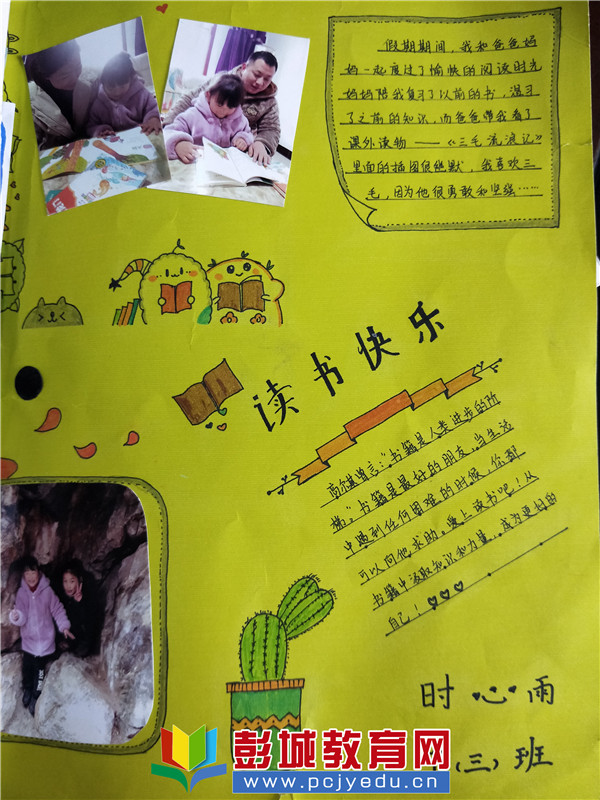 假期期间，我和爸爸妈
妈一起度过了愉快的阅读时光
妈妈陪我复习了以前的书，温习
了之前的知识，而爸爸带我看了
课外读物——《三毛流浪记》
里面的插图很幽默，我喜欢三
毛，因为他很勇敢和坚强……
读书快乐
高尔基曾言："书籍是人类进步的阶
梯。"书籍是最好的朋友，当生活
中遇到任何困难的时候，你都
可以向他求助。爱上读书吧！从
书籍中汲取知识和力量，成为更好的
自己！
时心雨
（三）班
彭城教育网
www.pcjyedu.cn